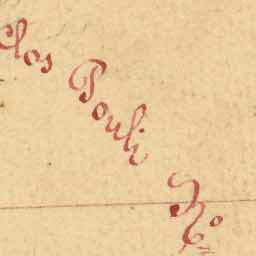 Clos Pouli